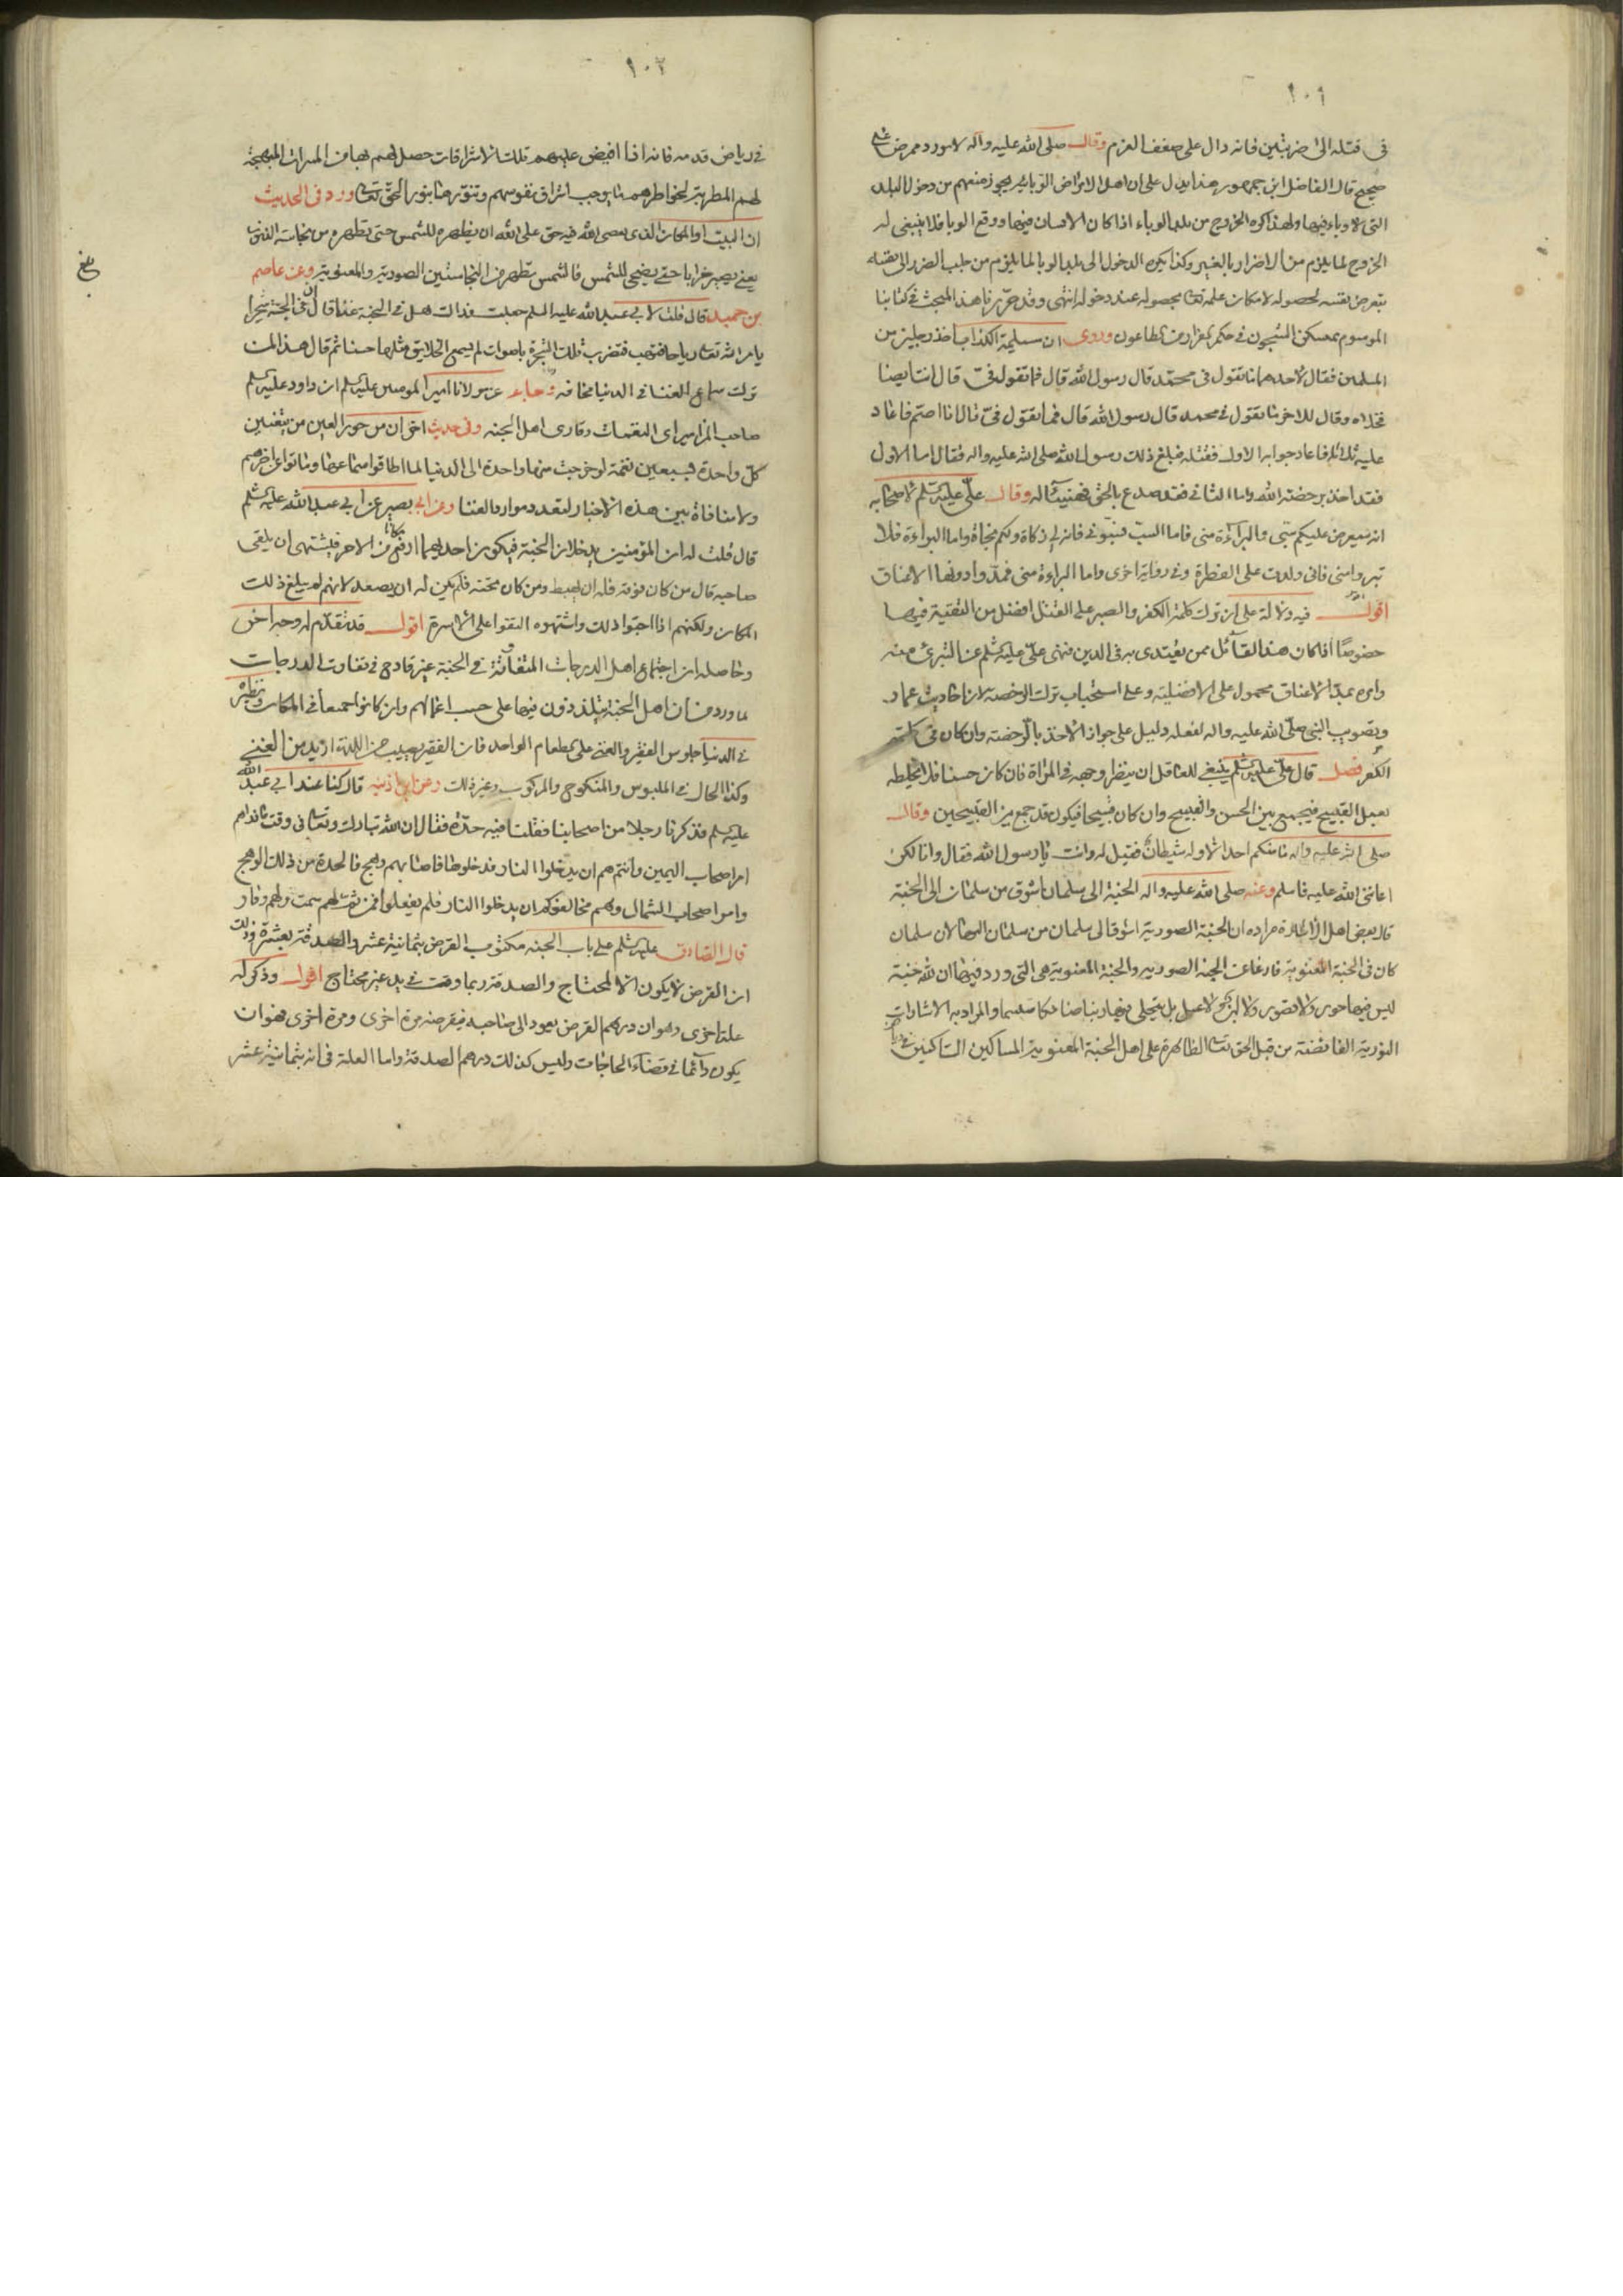 ١٠١
فى قتله الى ضربتين فانه دال على ضعف العزم وقال صلى الله عليه وآله لا يورد ممرض على
صحيح قال الفاضل ابن جمهور هذا يدل على ان اهل الامراض الوبائية يجوز منعهم من دخول البلد
التى لا وباء فيها ولهذا كره الخروج من بلد الوباء اذا كان الانسان فيها ووقع الوبا فلا ينبغى له
الخروج لما يلزم من الاضرار بالغير وكذا يكره الدخول الى بلد الوبا لما يلزم من جلب الضرر الى نفسه
بتعرض نفسه لحصوله لامكان علمه تعا بحصوله عند دخوله انتهى وقد حررنا هذا المبحث فى كتابنا
الموسوم بمسكن الشجون فى حكم الفرار من الطاعون وروى ان مسيلمة الكذاب اخذ رجلين من
المسلمين فقال لاحدهما ما تقول فى محمد قال رسول الله قال فما تقول فىّ قال انت ايضا
فخلاه وقال للاخر ما تقول فى محمد قال رسول الله قال فما تقول فىّ قال انا اصم فاعاد
عليه ثلاثا فاعاد جوابه الاول فقتله فبلغ ذلك رسول الله صلى الله عليه واله فقال اما الاول
فقد اخذ برخصة الله واما الثانى فقد صدع بالحق فهنيئا له وقال علىّ عليه السلم لاصحابه
انه سيعرض عليكم سبى والبراءة منى فاما السب فسبونى فانه لى زكاة ولكم نجاة واما البراءة فلا
تبروا منى فانى ولدت على الفطرة وفى رواية اخرى واما البراءة منى فمدوا دونها الاعناق
اقول فيه دلالة على ان ترك كلمة الكفر والصبر على القتل افضل من التقية فيها
خصوصًا اذا كان هذا القائل ممن يقتدى به فى الدين فنهى علىّ عليه السلم عن التبرى منه
وامره بمد الاعناق محمول على الافضلية وعلى استحباب ترك الرخصة لان احاديث عمار
وتصويب النبى صلى الله عليه واله لفعله دليل على جواز الاخذ بالرخصة وان كان فى كلمة
الكفر فصل قال علىّ عليه السلم ينبغى للعاقل ان ينظر وجهه فى المراة فان كان حسنا فلا يخلطه
بعمل القبيح فيجمع بين الحسن والقبيح وان كان قبيحا فيكون قد جمع بين القبيحين وقال
صلى الله عليه واله ما منكم احد الا وله شيطان فقيل له وانت يا رسول الله فقال وانا لكن
اعاننى الله عليه فاسلم وعنه صلى الله عليه واله الجنة الى سلمان اشوق من سلمان الى الجنة
قال بعض اهل الاشارة مراده ان الجنة الصورية اشوق الى سلمان من سلمان اليها لان سلمان
كان فى الجنة المعنوية فارغا عن الجنة الصورية والجنة المعنوية هى التى ورد فيها ان لله جنة
ليس فيها حور ولا قصور ولا لبن ولا عسل بل يتجلى فيها ربنا ضاحكا متبسما والمراد به الاشارات
النورية الفائضة من قبل الحق تعا الظاهرة على اهل الجنة المعنوية المساكين الساكنين
١٠٢
فى رياض قدسه فانه اذا افيض عليهم تلك الاشراقات حصل لهم بها من المسرات المبهجة
لهم المطربة لخواطرهم ما يوجب اشراق نفوسهم وتنورها بنور الحق تعا ورد فى الحديث
ان البيت او المكان الذى يعصى الله فيه حق على الله ان يظهره للشمس حتى تطهره من نجاسة الذنوب
يعنى يصير خرابا حتى يضحى للشمس فالشمس تطهر من النجاستين الصورية والمعنوية وعن عاصم
بن حميد قال قلت لابى عبد الله عليه السلم جعلت فداك هل فى الجنة غنا قال ان فى الجنة شجرا
يامر الله تعا رياحا فتهب فتضرب تلك الشجرة باصوات لم يسمع الخلايق مثلها حسنا ثم قال هذا لمن
ترك سماع الغنا فى الدنيا مخافة وجاء عن مولانا امير المومنين عليه السلم ان داود عليه السلم
صاحب المزامير اى النغمات وقارى اهل الجنة وفى حديث اخر ان من حور العين من يتغنين
كل واحدة بسبعين نغمة لو خرجت منها واحدة الى الدنيا لما اطاقوا سماعها وماتوا عن اخرهم
ولا منافاة بين هذه الاخبار لتعدد موارد الغنا وعن ابى بصير عن ابى عبد الله عليه السلم
قال قلت له ان المؤمنين يدخلان الجنة فيكون احدهما ارفع مكانا من الاخر فيشتهى ان يلقى
صاحبه قال من كان فوقه فله ان يهبط ومن كان تحته فلم يكن له ان يصعد لانه لم يبلغ ذلك
المكان ولكنهم اذا احبوا ذلك واشتهوه التقوا على الاسرة اقول قد تقدم له وجه اخر
وحاصله ان اجتماع اهل الدرجات المتفاوتة فى الجنة غير قادح فى تفاوت الدرجات
لما ورد من ان اهل الجنة يتلذذون فيها على حسب اعمالهم وان كانوا جميعا فى المكان ونظيره
فى الدنيا جلوس الفقير والغنى على طعام الواحد فان الفقير يصيب من اللذة ازيد من الغنى
وكذا الحال فى الملبوس والمنكوح والمركوب وغير ذلك وعن ابن اذينه قال كنا عند ابى عبد الله
عليه السلم فذكرنا رجلا من اصحابنا فقلنا فيه حدّة فقال ان الله تبارك وتعالى وقت ما ذراهم
امر اصحاب اليمين وانتم هم ان يدخلوا النار فدخلوها فاصابهم وهج فالحدة من ذلك الوهج
وامر اصحاب الشمال وهم مخالفوكم ان يدخلوا النار فلم يفعلوا فمن ثمّ لهم سمت ولهم وقار
قال الصادق عليه السلم على باب الجنة مكتوب القرض بثمانية عشر والصدقة بعشرة وذلك
ان القرض لا يكون الا لمحتاج والصدقة ربما وقعت فى يد غير محتاج اقول وذكر له
علة اخرى وهو ان درهم القرض يعود الى صاحبه فيقرضه مرة اخرى ومرة اخرى فهو ان
يكون دائما فى قضاء الحاجات وليس كذلك درهم الصدقة واما العلة فى انه بثمانية عشر